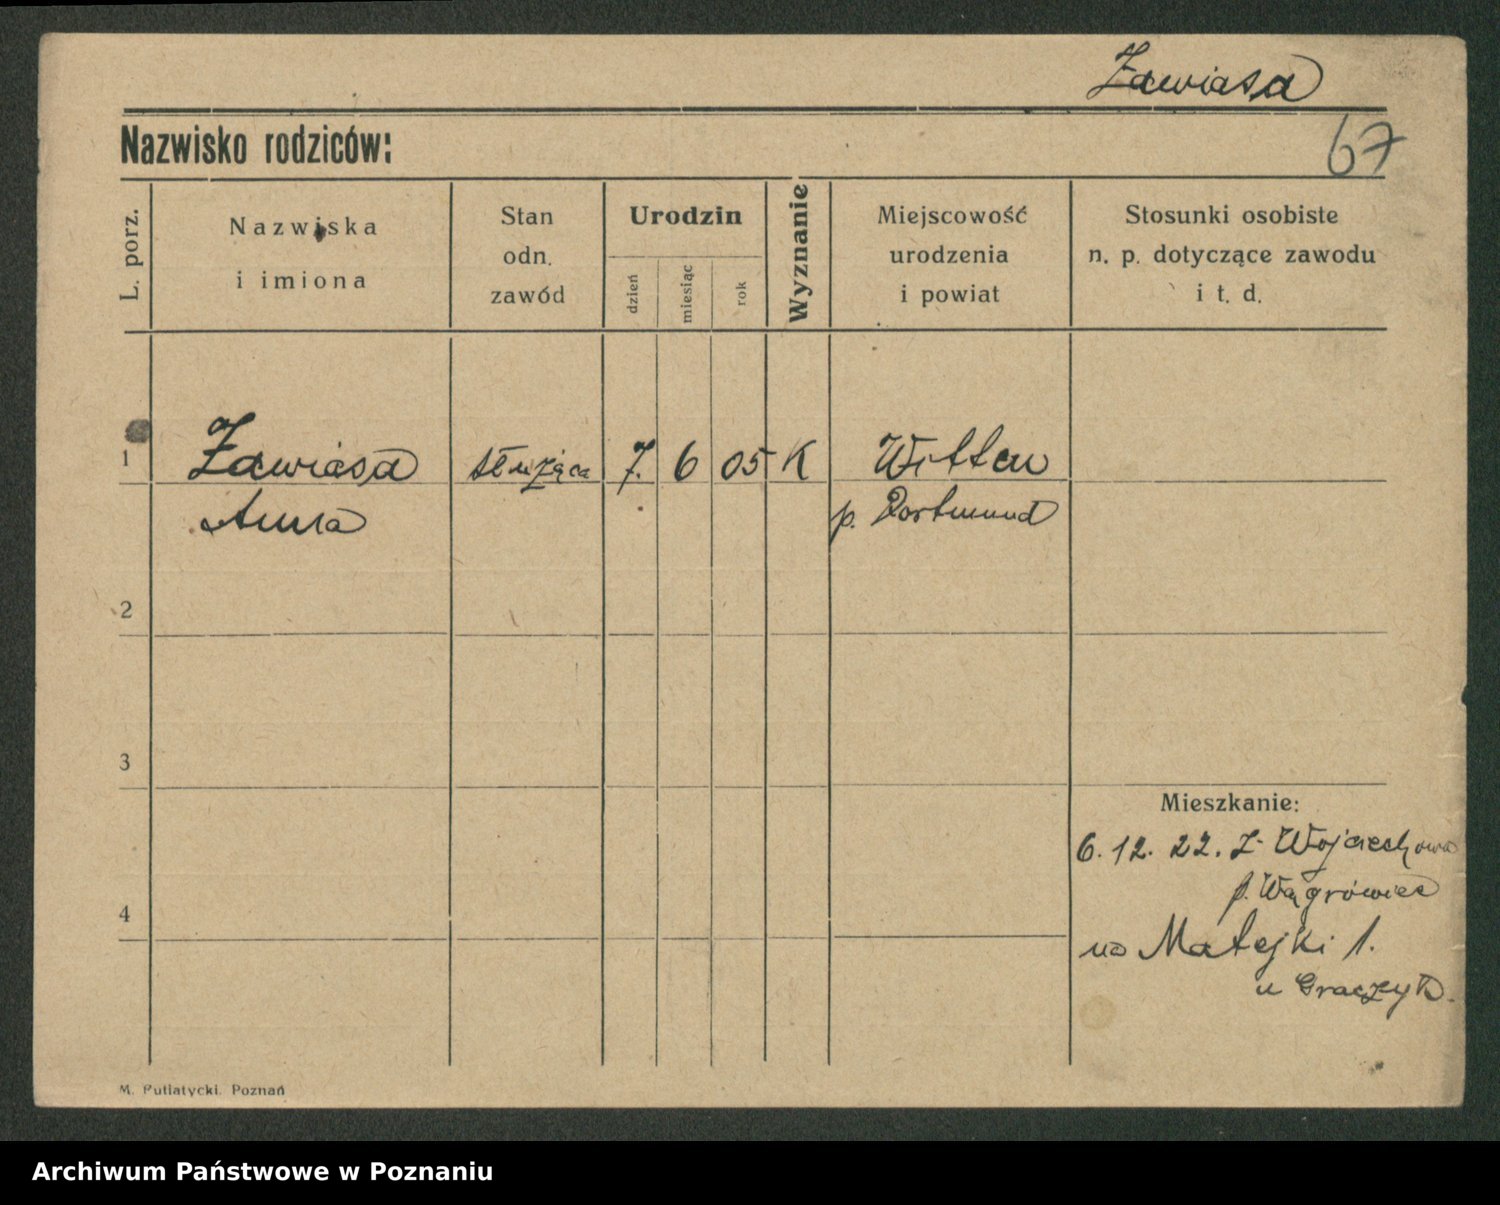 Zawiasa
67
Nazwisko rodziców:
L. porz.
Nazwiska
i imiona
Stan
odn.
zawód
Urodzin
dzień
miesiąc
rok
Wyznanie
Miejscowość
urodzenia
i powiat
Stosunki osobiste
n. p. dotyczące zawodu
i t. d.
1 Zawiasa służąca 7. 6 05 K Witten
Anna p. Dortmund
2
3
4
Mieszkanie:
6. 12. 22. z Wojciechowa
p. Wągrówiec
na Matejki 1.
u Graczyk.
M. Putiatycki. Poznań
Archiwum Państwowe w Poznaniu